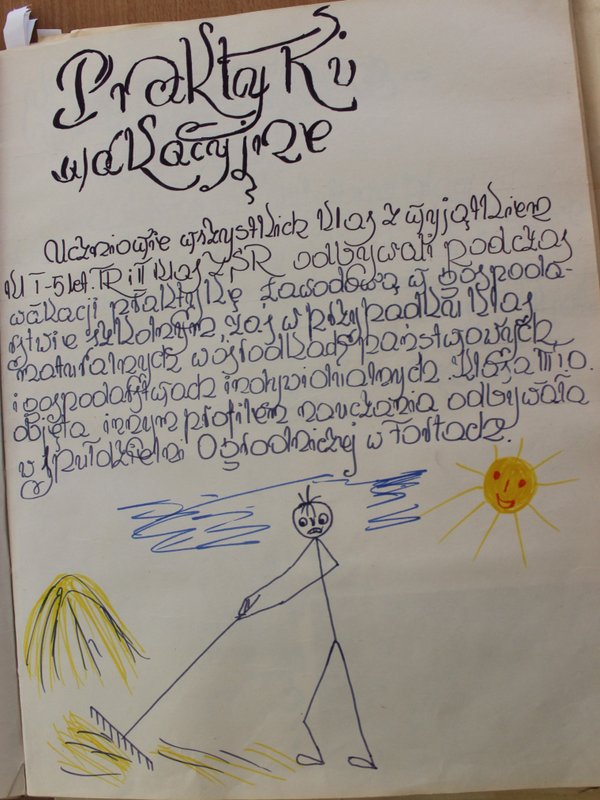 Praktyki
wakacyjne
Uczniowie wszystkich klas z wyjątkiem
kl I-5 let. TR i II klas ZSR odbywali podczas
wakacji praktykę zawodową w gospoda-
rstwie szkolnym, zaś w przypadku klas
maturalnych w ośrodkach państwowych
i gospodarstwach indywidualnych. Klasa III o.
objęta innym profilem nauczania odbywała
w spółdzielni Ogrodniczej w Fortach.